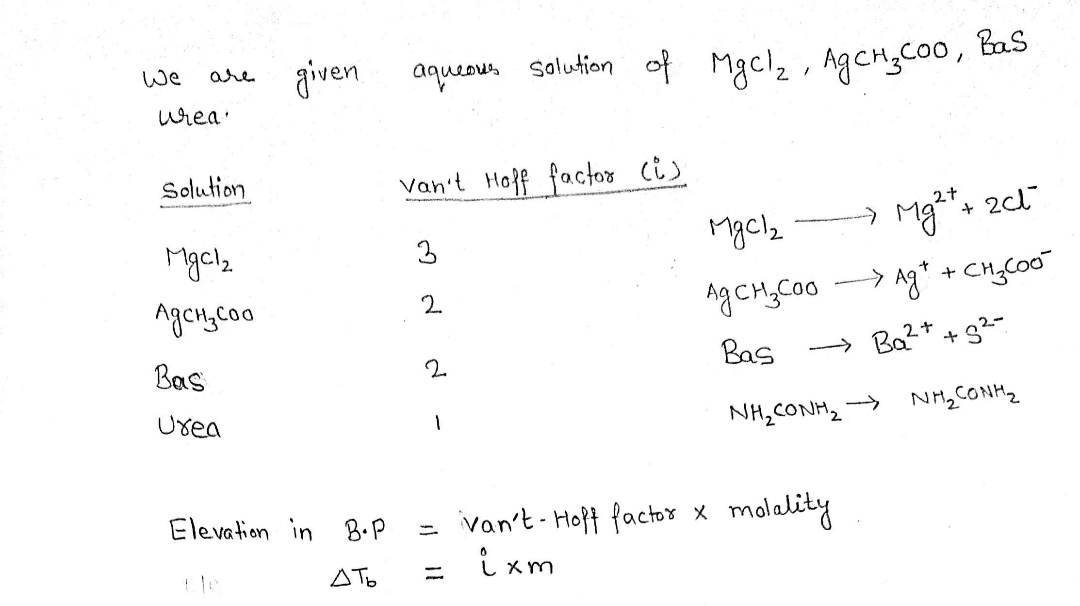 We are given aqueous solution of MgCl₂, AgCH₃COO, BaS
urea.
Solution Van't Hoff factor (i)
MgCl₂ 3 MgCl₂ → Mg²⁺ + 2Cl⁻
AgCH₃COO 2 AgCH₃COO → Ag⁺ + CH₃COO⁻
BaS 2 BaS → Ba²⁺ + S²⁻
Urea 1 NH₂CONH₂ → NH₂CONH₂
Elevation in B.P = Van't-Hoff factor x molality
ΔT_b = i x m